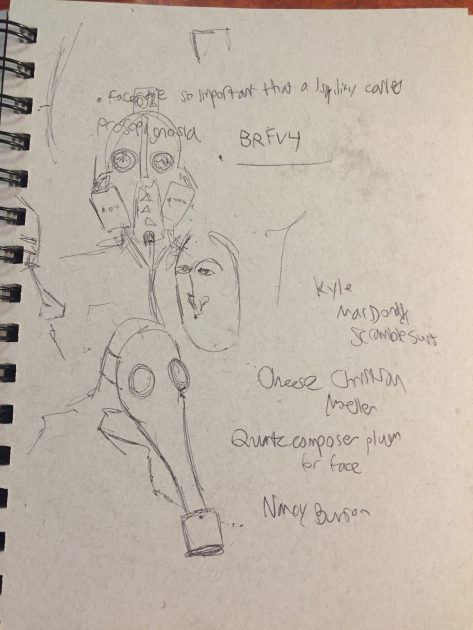 so important that a called
Prosopagnosia
BRFV4
Kyle
MacDonald
Scramblesuit
Cheese Christian
Moeller
Quartz composer plugin
for face
Nancy Burson